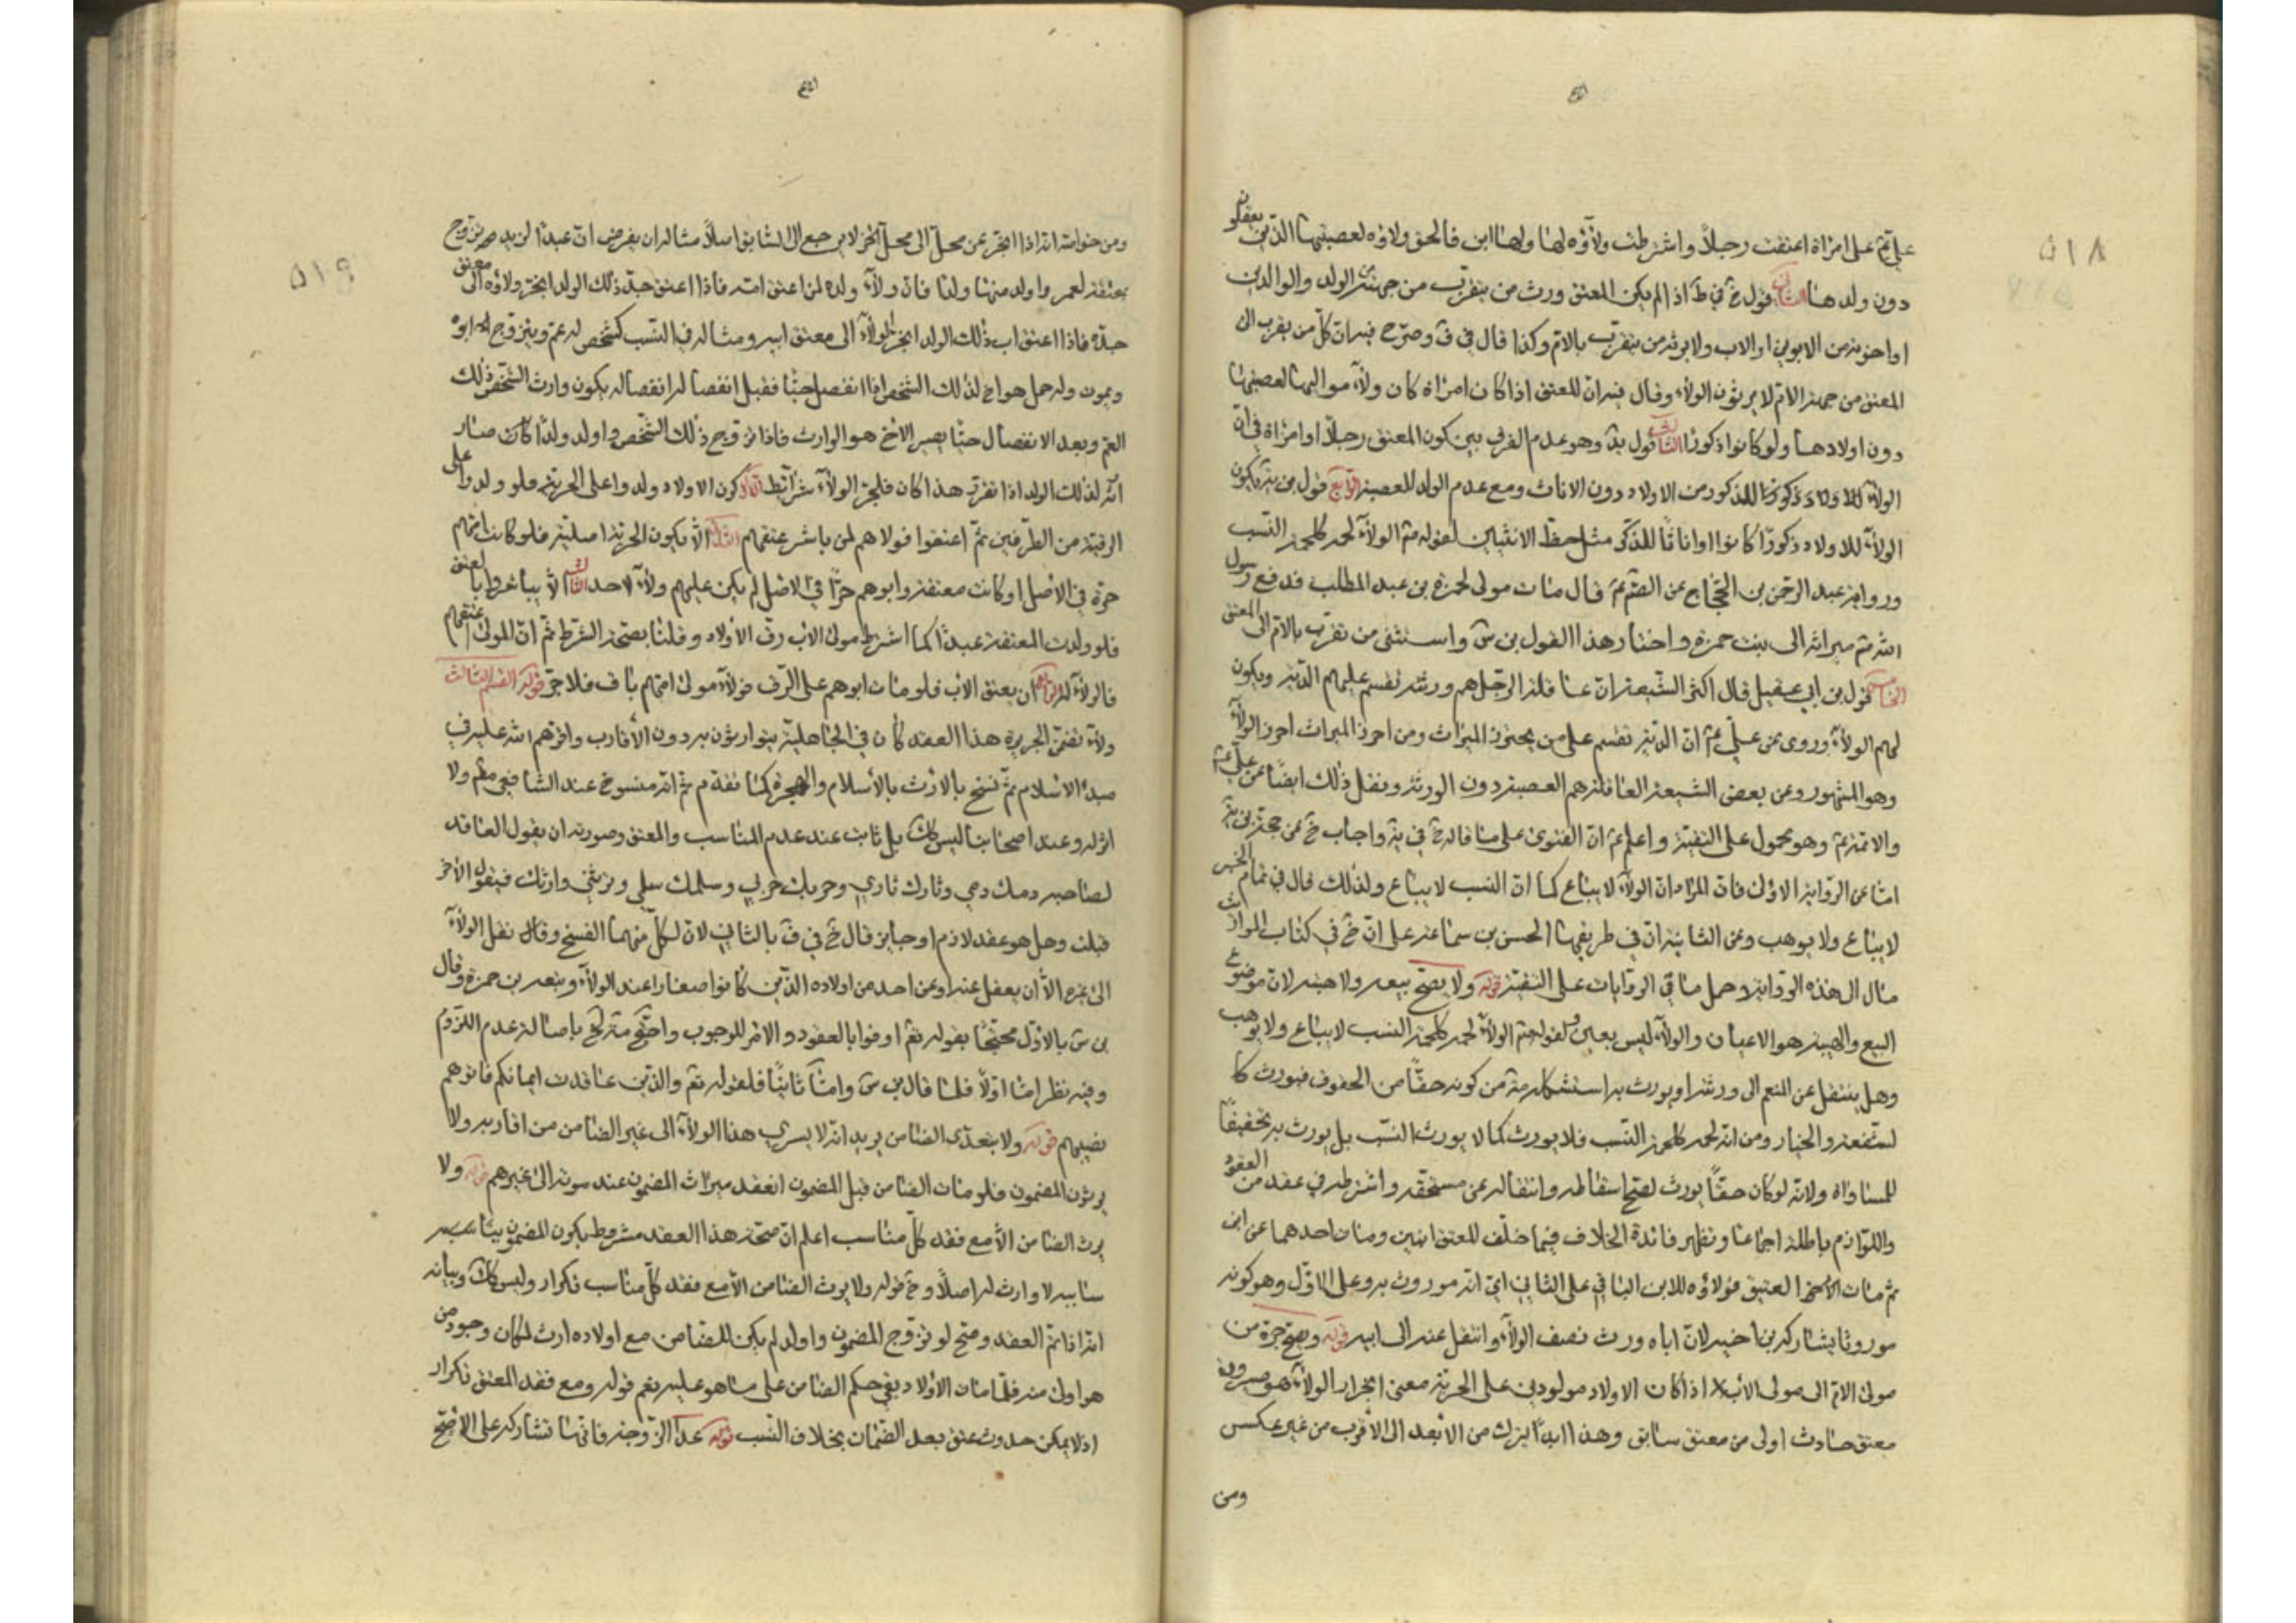 ٥١٨
على امراة اعتقت رجلاً واشترطت ولاؤه لها ولها ابن فالحق ولاؤه لعصبتها الذين يعقلون
دون ولدها الثاني قول خ في ط اذا لم يكن المعتق ورث من يتقرب من جهته من الولد والوالدين
او اخوته من الابوين او الاب ولا يرثه من يتقرب بالام وكذا قال في ف وصرح فيه ان كل من يقرب الى
المعتق من جهة الام لا يرثون الولاء وقال فيه ان للمعتق اذا كان امراة كان ولاء مواليها لعصبتها
دون اولادها ولو كانوا ذكورا الثالث قول يد وهو عدم الفرق بين كون المعتق رجلا او امراة في ان
الولاء للذكور من الاولاد دون الاناث ومع عدم الولد للعصبة الرابع قول بن يه يكون
الولاء للاولاد ذكورًا كانوا او اناثًا للذكر مثل حظ الانثيين لقوله الولاء لحمة كلحمة النسب
ورواية عبد الرحمن بن الحجاج عن الصم قال مات مولى لحمزة بن عبد المطلب فدفع رسول
الله ميراثه الى بنت حمزة واختار هذا القول بن س واستثنى من تقرب بالام الى المعتق
الخامس قول بن ابي عقيل قال اكثر الشيعة ان عاقلة الرجل هم ورثته تقسم عليهم الدية ويكون
لهم الولاء وروى عن علي ع ان الدية تقسم على من يحوز الميراث ومن احرز الميراث احرز الولاء
وهو المشهور وعن بعض الشيعة العاقلة هم العصبة دون الورثة ونقل ذلك ايضًا عن علي ع
والائمة ع وهو محمول على التقية واعلم ان الفتوى على ما قاله خ في يه واجاب خ عن حجة بن يه
اما عن الرواية الاولى فان المراد ان الولاء لا يباع كما ان النسب لا يباع ولذلك قال في تمام الخبر
لا يباع ولا يوهب وعن الثانية ان في طريقها الحسن بن سماعة على ان خ في كتاب المواريث
مال الى هذه الرواية وحمل ما في الروايات على التقية قوله ولا يصح بيعه ولا هبته لان موضوع
البيع والهبة هو الاعيان والولاء ليس بعين ولقوله الولاء لحمة كلحمة النسب لا يباع ولا يوهب
وهل ينتقل عن المنعم الى ورثته او يورث به استشكله من كونه حقًّا من الحقوق فيورث كا
لشفعة والخيار ومن انه لحمة كلحمة النسب فلا يورث كما لا يورث النسب بل يورث به تحقيقًا
للمساواة ولانه لو كان حقًّا يورث لصح اسقاطه وانتقاله عن مستحقه واشترطه في عقد من العقود
واللوازم باطلة اجماعا وتظهر فائدة الخلاف فيما خلف للمعتق ابنين ومات احدهما عن ابن
ثم مات العتيق فولاؤه للابن الباقي على الثاني اي انه موروث به وعلى الاول وهو كونه
موروثا يشاركه بن اخيه لان اباه ورث نصف الولاء وانتقل عنه الى ابنه قوله ويصح جره من
مولى الام الى مولى الاب اذا كان الاولاد مولودين على الحرية معنى انجرار الولاء هو صيرورة
معتق حادث اولى من معتق سابق وهذا ابدًا يترك من الابعد الى الاقرب من غير عكس
ومن
٥١٩
ومن خواصه انه اذا انجر عن محل الى محل اخر لا يرجع الى السابق اصلاً مثاله ان يفرض ان عبدًا لزيد تزوج
بمعتقة لعمرو واولد منها ولدا فان ولاء ولده لمن اعتق امه فاذا اعتق جد ذلك الولد انجر ولاؤه الى معتق
جده فاذا اعتق اب ذلك الولد انجر الولاء الى معتق ابيه ومثاله في النسب كشخص له عم ويتزوج ابوه
ويموت وله حمل هو اخ لذلك الشخص اذا انفصل حيًّا فقبل انفصاله يكون وارث الشخص ذلك
العم وبعد الانفصال حيًّا يصير الاخ هو الوارث فاذا تزوج ذلك الشخص واولد ولدًا كان صار
ارثه لذلك الولد اذا تقرر هذا كان فلجر الولاء شرائط الاول كون الاولاد ولدوا على الحرية فلو ولدوا على
الرقية من الطرفين ثم اعتقوا فولاهم لمن باشر عتقهم الثاني الا يكون الحرية اصلية فلو كانت امهم
حرة في الاصل او كانت معتقة وابوهم حرًّا في الاصل لم يكن عليهم ولاء لاحد الثالث الا يباشروا بالعتق
فلو ولدت المعتقة عبدًا كما اشترط مولى الاب رق الاولاد وقلنا بصحة الشرط ثم ان المولى اعتقهم
فالولاء له الرابع ان يعتق الاب فلو مات ابوهم على الرق فولاء مولى امهم باق فلا جر قوله القسم الثالث
ولاء تضمن الجريرة هذا العقد كان في الجاهلية يتوارثون به دون الاقارب واقرهم الله عليه في
مبدأ الاسلام ثم نسخ بالارث بالاسلام والهجرة كما تقدم ثم انه منسوخ عند الشافعي مطم ولا
ارث له وعند اصحابنا ليس كك بل ثابت عند عدم المناسب والمعتق وصورته ان يقول العاقد
لصاحبه دمك دمي وثارك ثاري وحربك حربي وسلمك سلمي وترثني وارثك فيقول الآخر
قبلت وهل هو عقد لازم او جايز قال خ في ف بالثاني لان لكل منهما الفسخ وقال نقل الولاء
الى غيره الا ان يعقل عنه او عن احد من اولاده الذين كانوا صغارا عند الولاء وتبعه بن حمزة وقال
بن س بالاول محتجًّا بقوله تع اوفوا بالعقود والامر للوجوب واحتج خ باصالة عدم اللزوم
وفيه نظر اما اولاً فلما قال بن س واما ثانيًا فلقوله تع والذين عاقدت ايمانكم فاتوهم
نصيبهم قوله ولا يتعدى الضامن يريد انه لا يسري هذا الولاء الى غير الضامن من اقاربه ولا
يرثون المضمون فلو مات الضامن قبل المضمون انعقد ميراث المضمون عند موته الى غيرهم قوله ولا
يرث الضامن الا مع فقد كل مناسب اعلم ان صحة هذا العقد مشروط بكون المضمون
سايبه لا وارث له اصلاً وح قوله ولا يرث الضامن الا مع فقد كل مناسب تكرار وليس كك وبيانه
انه اذا تم العقد وصح لو تزوج المضمون واولد لم يكن للضامن مع اولاده ارث لمكان وجود من
هو اولى منه فلما مات الاولاد بقي حكم الضامن على ما هو عليه نعم قوله ومع فقد المعتق تكرار
اذ لا يمكن حدوث عتق بعد الضمان بخلاف النسب قوله عدا الزوجة فانها تشاركه على الاصح